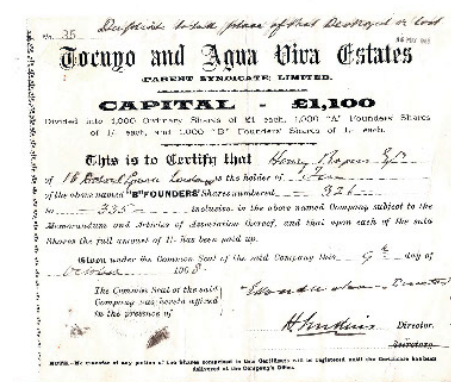 Duplicate to take place of that Destroyed or lost
No. 35
Tocuyo and Agua Viva Estates
(PARENT SYNDICATE) LIMITED.
CAPITAL - £1,100
Divided into 1,000 Ordinary Shares of £1 each, 1,000 "A" Founders' Shares
of 1/- each, and 1,000 "B" Founders' Shares of 1/- each.
This is to Certify that Henry Rogers
of 16 London is the holder of Ten
of the above named "B" FOUNDERS' Shares numbered 326
to 335 inclusive, in the above named Company subject to the
Memorandum and Articles of Association thereof, and that upon each of the said
Shares the full amount of 1/- has been paid up.
Given under the Common Seal of the said Company this 9th day of
October 1908.
The Common Seal of the said
Company was hereto affixed
in the presence of
Director
Director.
Secretary.
NOTE.-No transfer of any portion of the Shares comprised in this Certificate will be registered until the Certificate has been
delivered at the Company's Office.